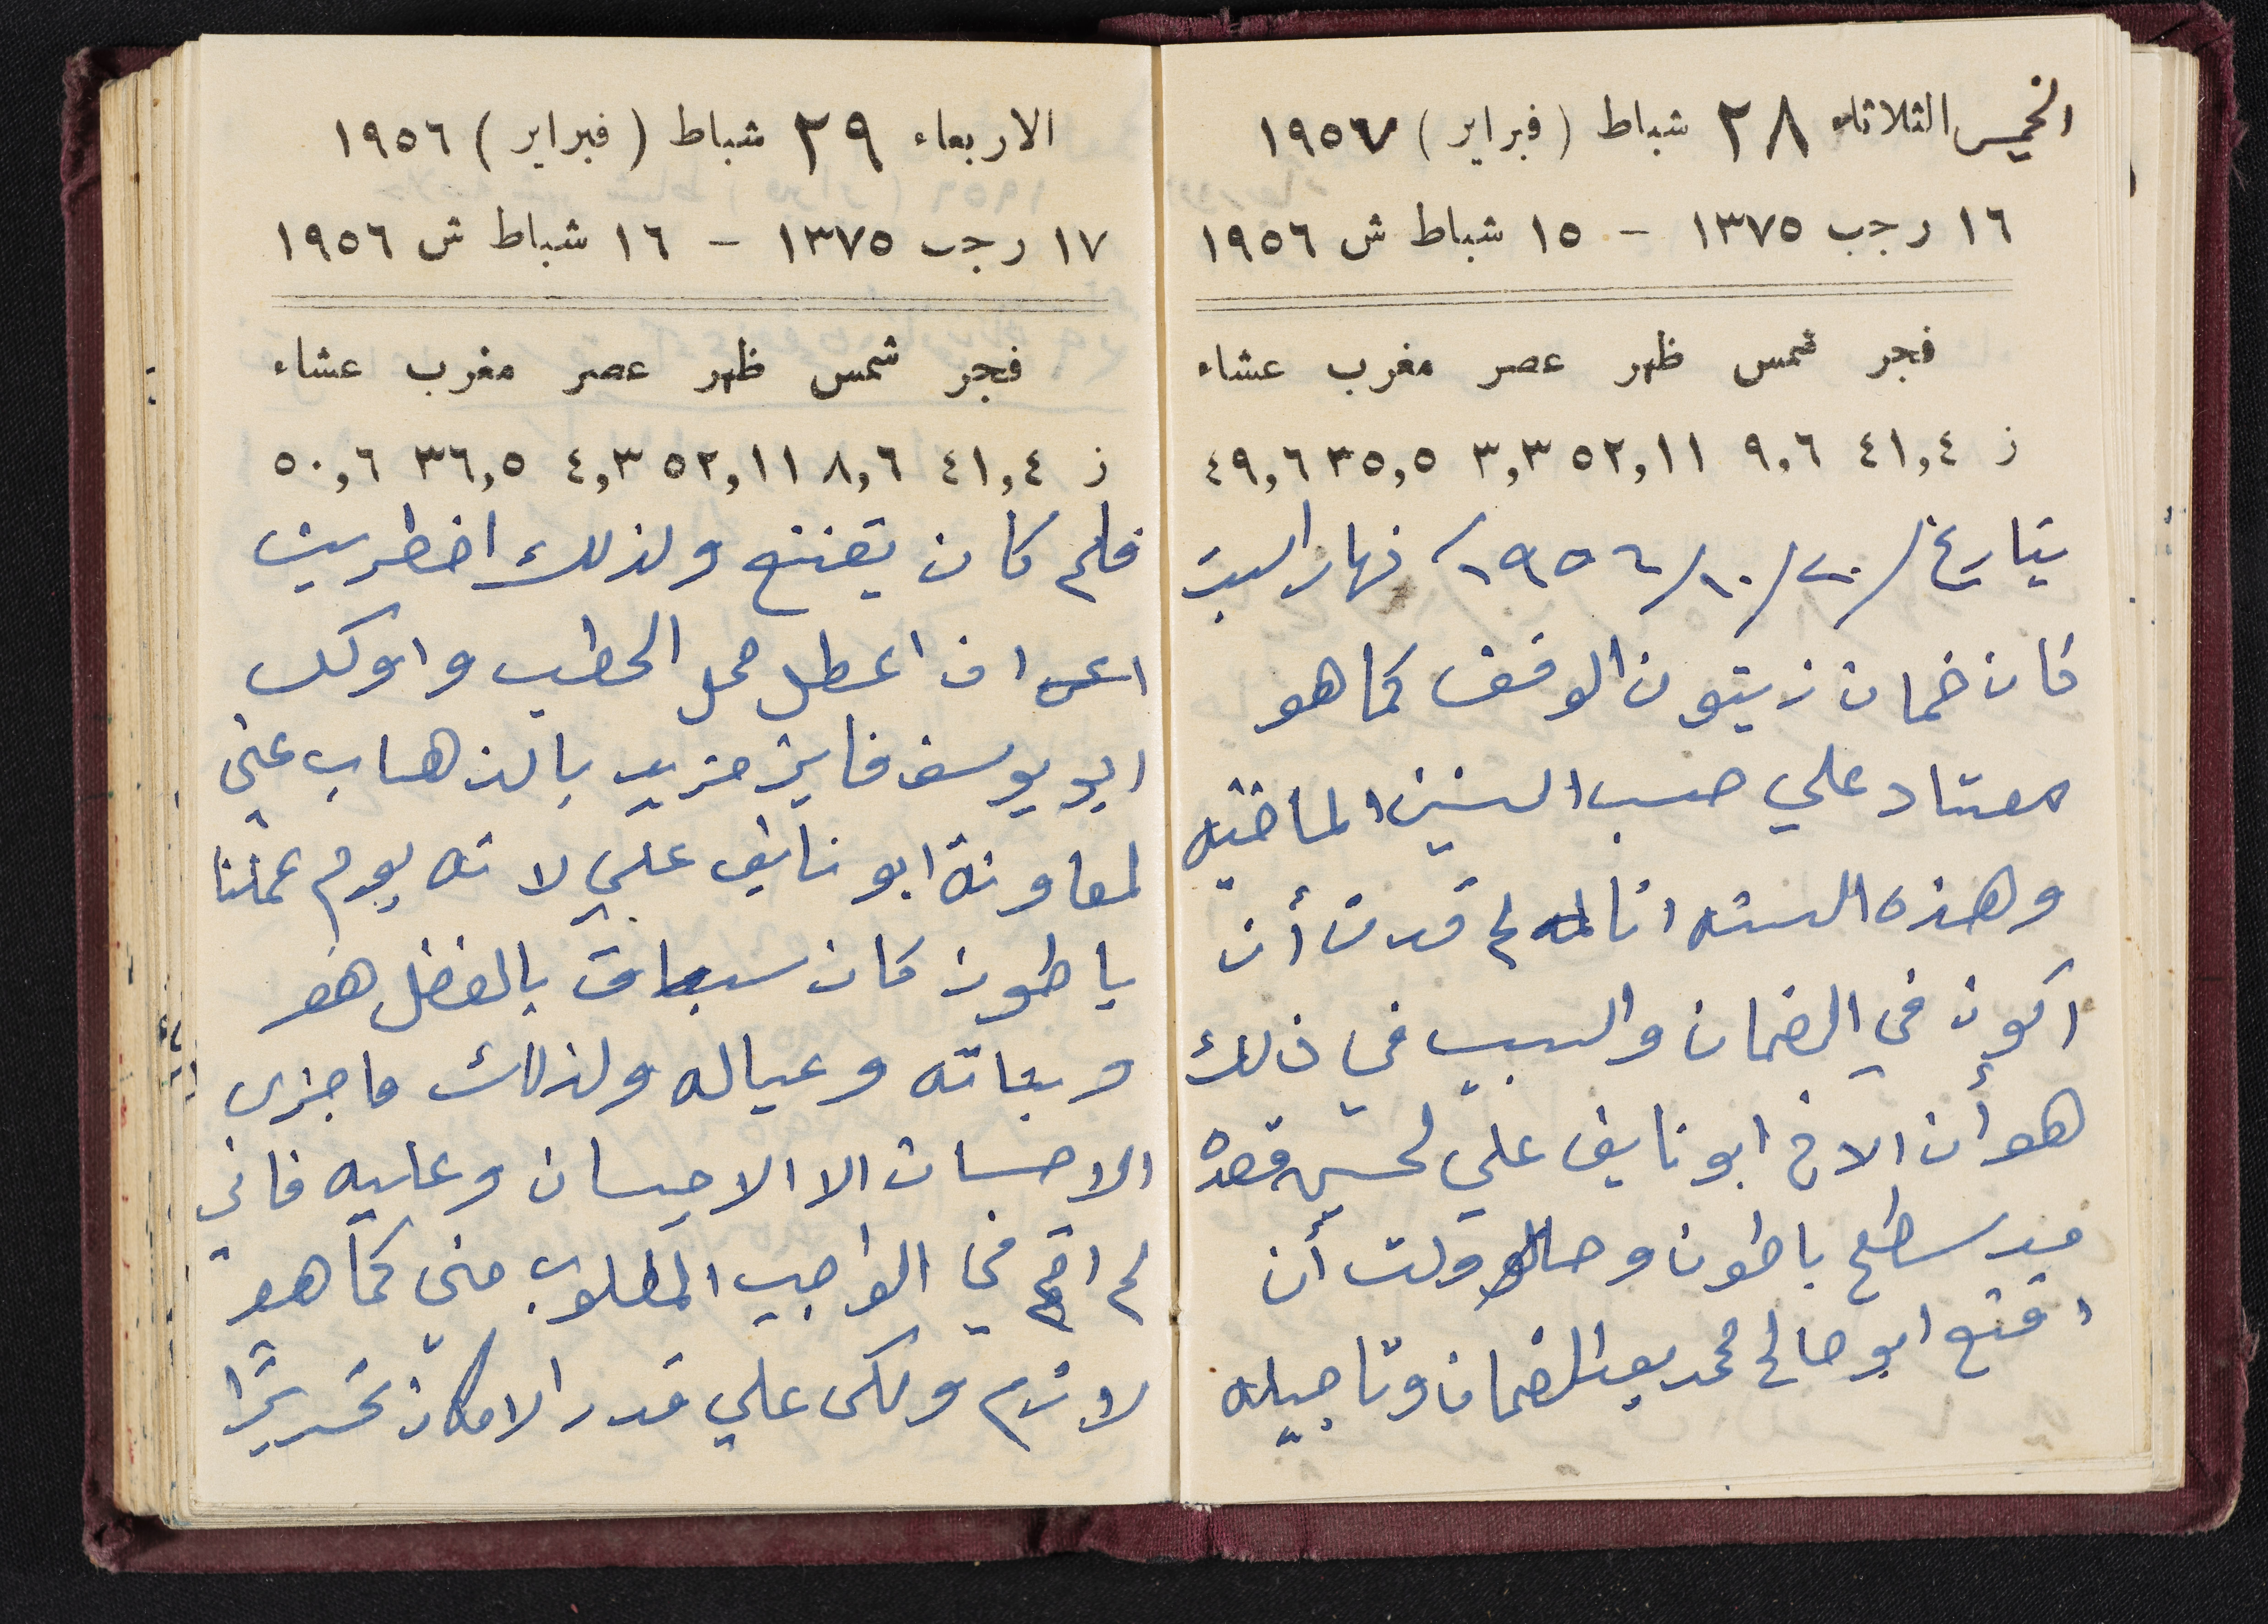 الخميس الثلاثاء ٢٨ شباط (فبراير) ١٩٥٧
١٦ رجب ١٣٧٥ - ١٥ شباط ش ١٩٥٦
فجر شمس ظهر عصر مغرب عشاء
ز ٤١,٤ ٩,٦ ٥٢,١١ ٣,٣ ٣٥,٥ ٤٩,٦
بتاريخ /٢٠/١٠/١٩٥٦/ نهار السبت
كان ضمان زيتون الوقف كما هو
معتاد علي حسب السنين الماضيه
وهذه السنه انا لم قدرت أن
اكون في الضمان والسبب في ذلك
هو أن الاخ ابو نايف علي لحسين قصده
مد سطح باطون وحاولت أن
اقنع ابو صالح محمد بعد الضمان وتاجيله
الاربعاء ٢٩ شباط (فبراير) ١٩٥٦
١٧ رجب ١٣٧٥ - ١٦ شباط ش ١٩٥٦
فجر شمس ظهر عصر مغرب عشاء
ز ٤١,٤ ٨,٦ ٥٢,١١ ٤,٣ ٣٦,٥ ٥٠,٦
فلم كان يقتنع ولذلك اضطريت
ان اعطل محل الحطب واوكل
ابو يوسف فايز مزيد بالذهاب عني
لمعاونة ابو نايف علي لانه يوم عملنا
باطون كان سباق بالفضل هو
وبناته وعياله ولذلك ما جزى
الاحسان الا الاحسان وعليه فاني
لم اقم في الواجب المطلوب مني كما هو
لازم ولكن علي قدر الامكان تحريرًا